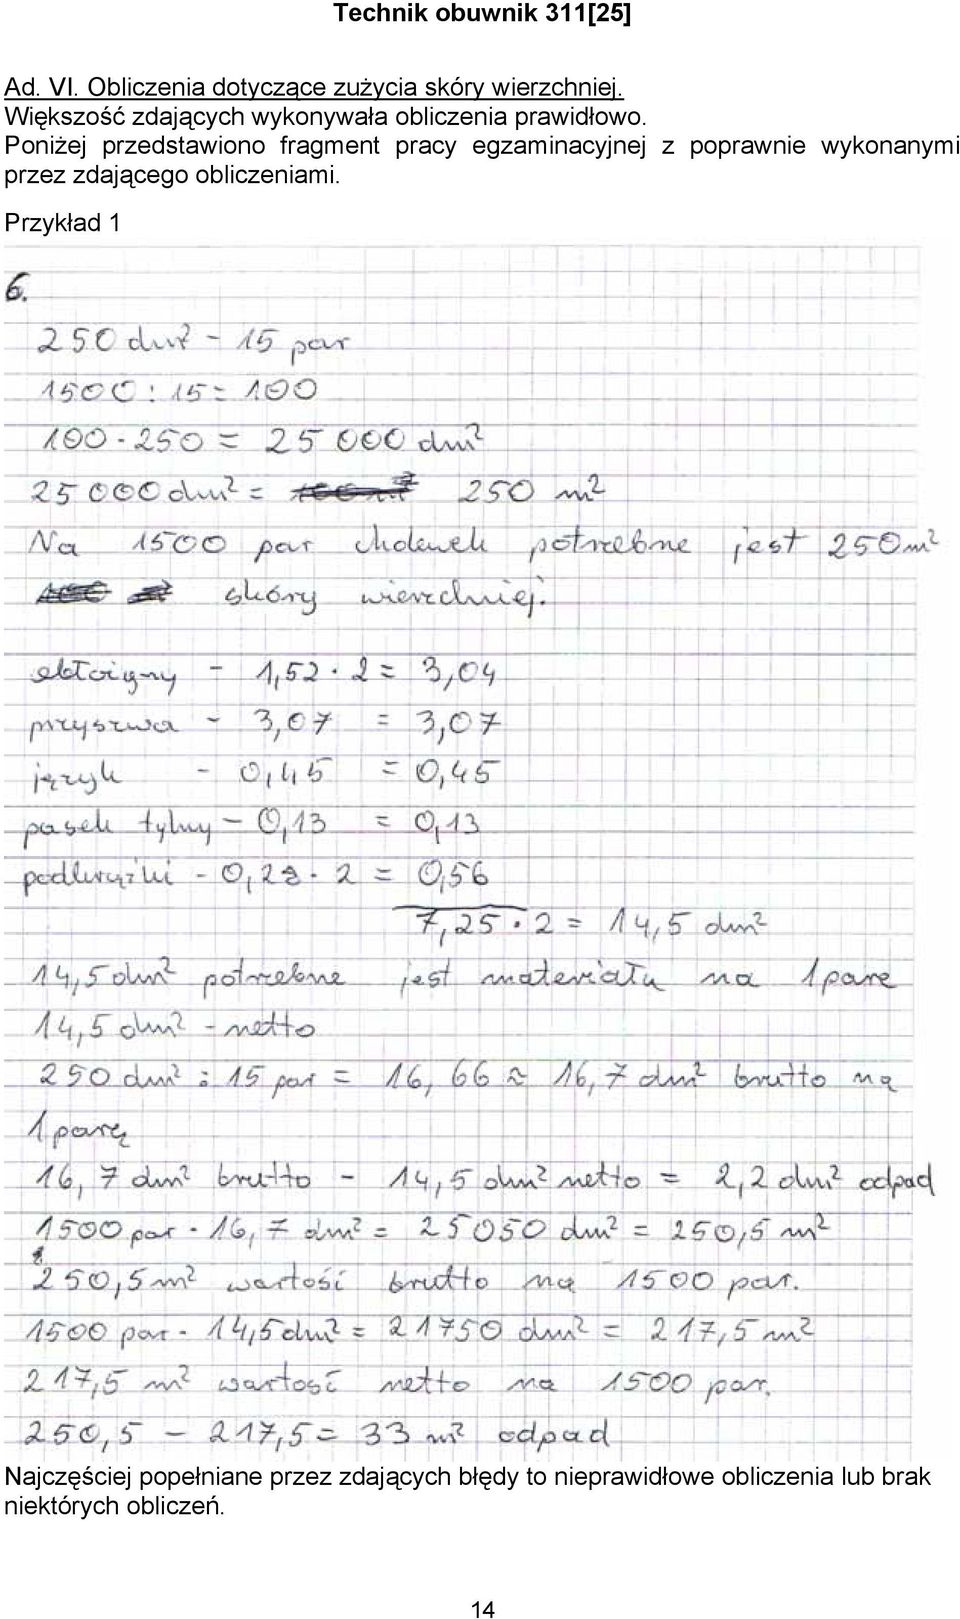 Technik obuwnik 311[25]
Ad. VI. Obliczenia dotyczące zużycia skóry wierzchniej.
Większość zdających wykonywała obliczenia prawidłowo.
Poniżej przedstawiono fragment pracy egzaminacyjnej z poprawnie wykonanymi
przez zdającego obliczeniami.
Przykład 1
6.
250 dm² - 15 par
1500 : 15 = 100
100 · 250 = 25 000 dm²
25 000 dm² = 250 m²
Na 1500 par cholewek potrzebne jest 250 m²
skóry wierzchniej.
obłożyny - 1,52 · 2 = 3,04
przyszwa - 3,07 = 3,07
język - 0,45 = 0,45
pasek tylny - 0,13 = 0,13
podkrążki - 0,28 · 2 = 0,56
7,25 · 2 = 14,5 dm²
14,5 dm² potrzebne jest materiału na 1 parę
14,5 dm² - netto
250 dm² : 15 par = 16,66 ≈ 16,7 dm² brutto na
1 parę
16,7 dm² brutto - 14,5 dm² netto = 2,2 dm² odpad
1500 par · 16,7 dm² = 25050 dm² = 250,5 m²
250,5 m² wartość brutto na 1500 par.
1500 par · 14,5 dm² = 21750 dm² = 217,5 m²
217,5 m² wartość netto na 1500 par.
250,5 - 217,5 = 33 m² odpad
Najczęściej popełniane przez zdających błędy to nieprawidłowe obliczenia lub brak
niektórych obliczeń.
14